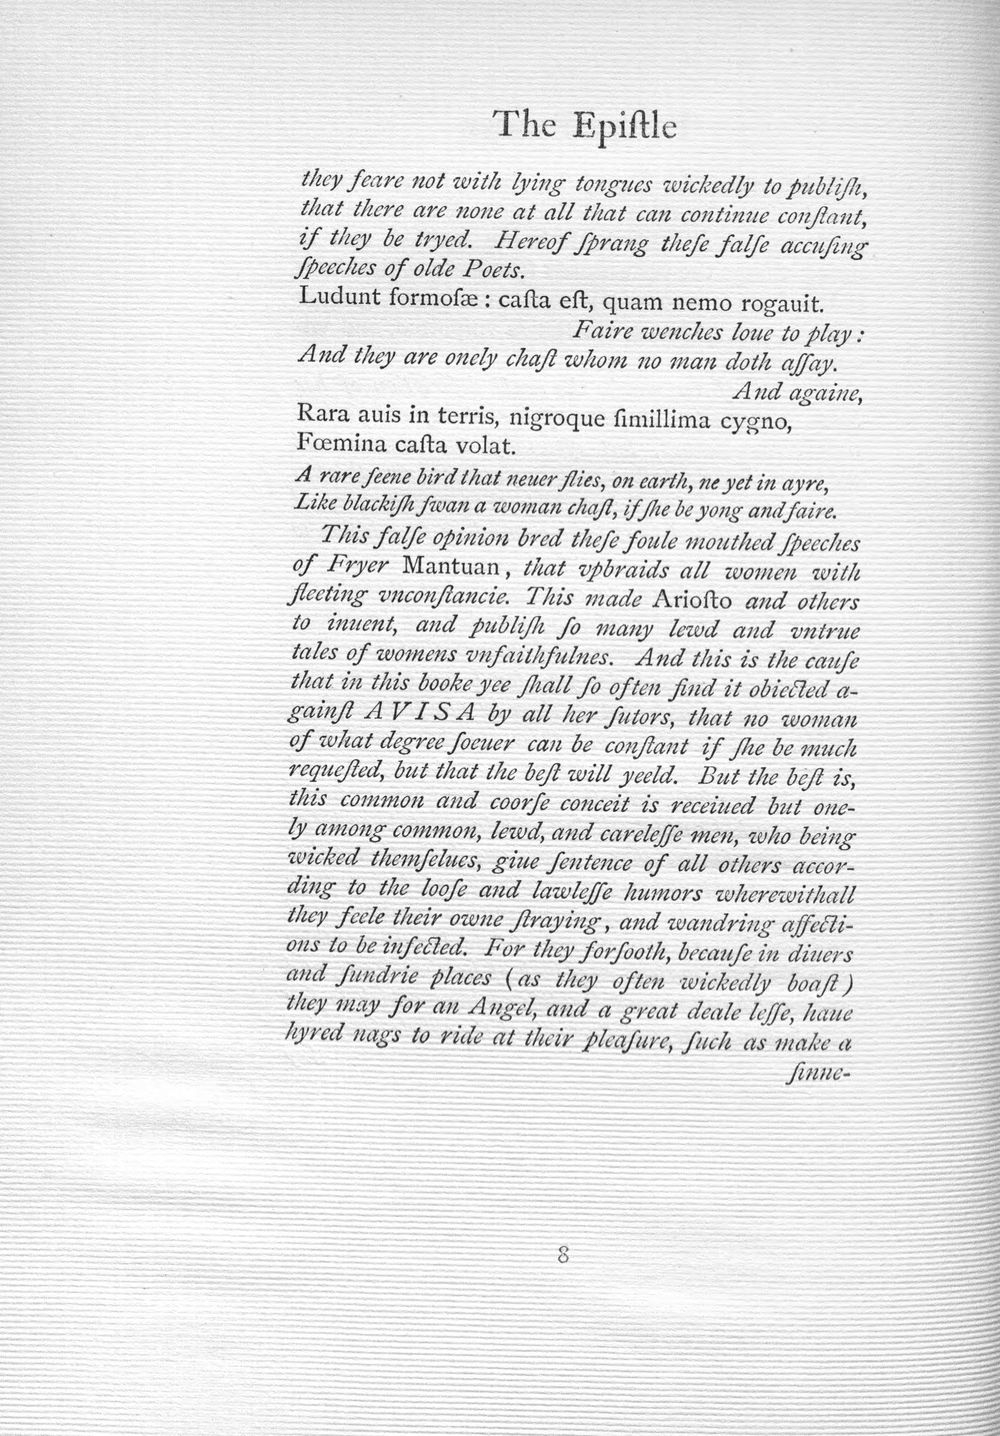 The Epiſtle
they feare not with lying tongues wickedly to publiſh,
that there are none at all that can continue conſtant,
if they be tryed. Hereof ſprang theſe falſe accuſing
ſpeeches of olde Poets.
Ludunt formoſæ : caſta eſt, quam nemo rogauit.
Faire wenches loue to play :
And they are onely chaſt whom no man doth aſſay.
And againe,
Rara auis in terris, nigroque ſimillima cygno,
Fœmina caſta volat.
A rare ſeene bird that neuer flies, on earth, ne yet in ayre,
Like blackiſh ſwan a woman chaſt, if ſhe be yong and faire.
This falſe opinion bred theſe foule mouthed ſpeeches
of Fryer Mantuan, that vpbraids all women with
fleeting vnconſtancie. This made Arioſto and others
to inuent, and publiſh ſo many lewd and vntrue
tales of womens vnfaithfulnes. And this is the cauſe
that in this booke yee ſhall ſo often find it obiected a-
gainſt AVISA by all her ſutors, that no woman
of what degree ſoeuer can be conſtant if ſhe be much
requeſted, but that the beſt will yeeld. But the beſt is,
this common and coorſe conceit is receiued but one-
ly among common, lewd, and careleſſe men, who being
wicked themſelues, giue ſentence of all others accor-
ding to the looſe and lawleſſe humors wherewithall
they feele their owne ſtraying, and wandring affecti-
ons to be infected. For they forſooth, becauſe in diuers
and ſundrie places (as they often wickedly boaſt)
they may for an Angel, and a great deale leſſe, haue
hyred nags to ride at their pleaſure, ſuch as make a
ſinne-
8